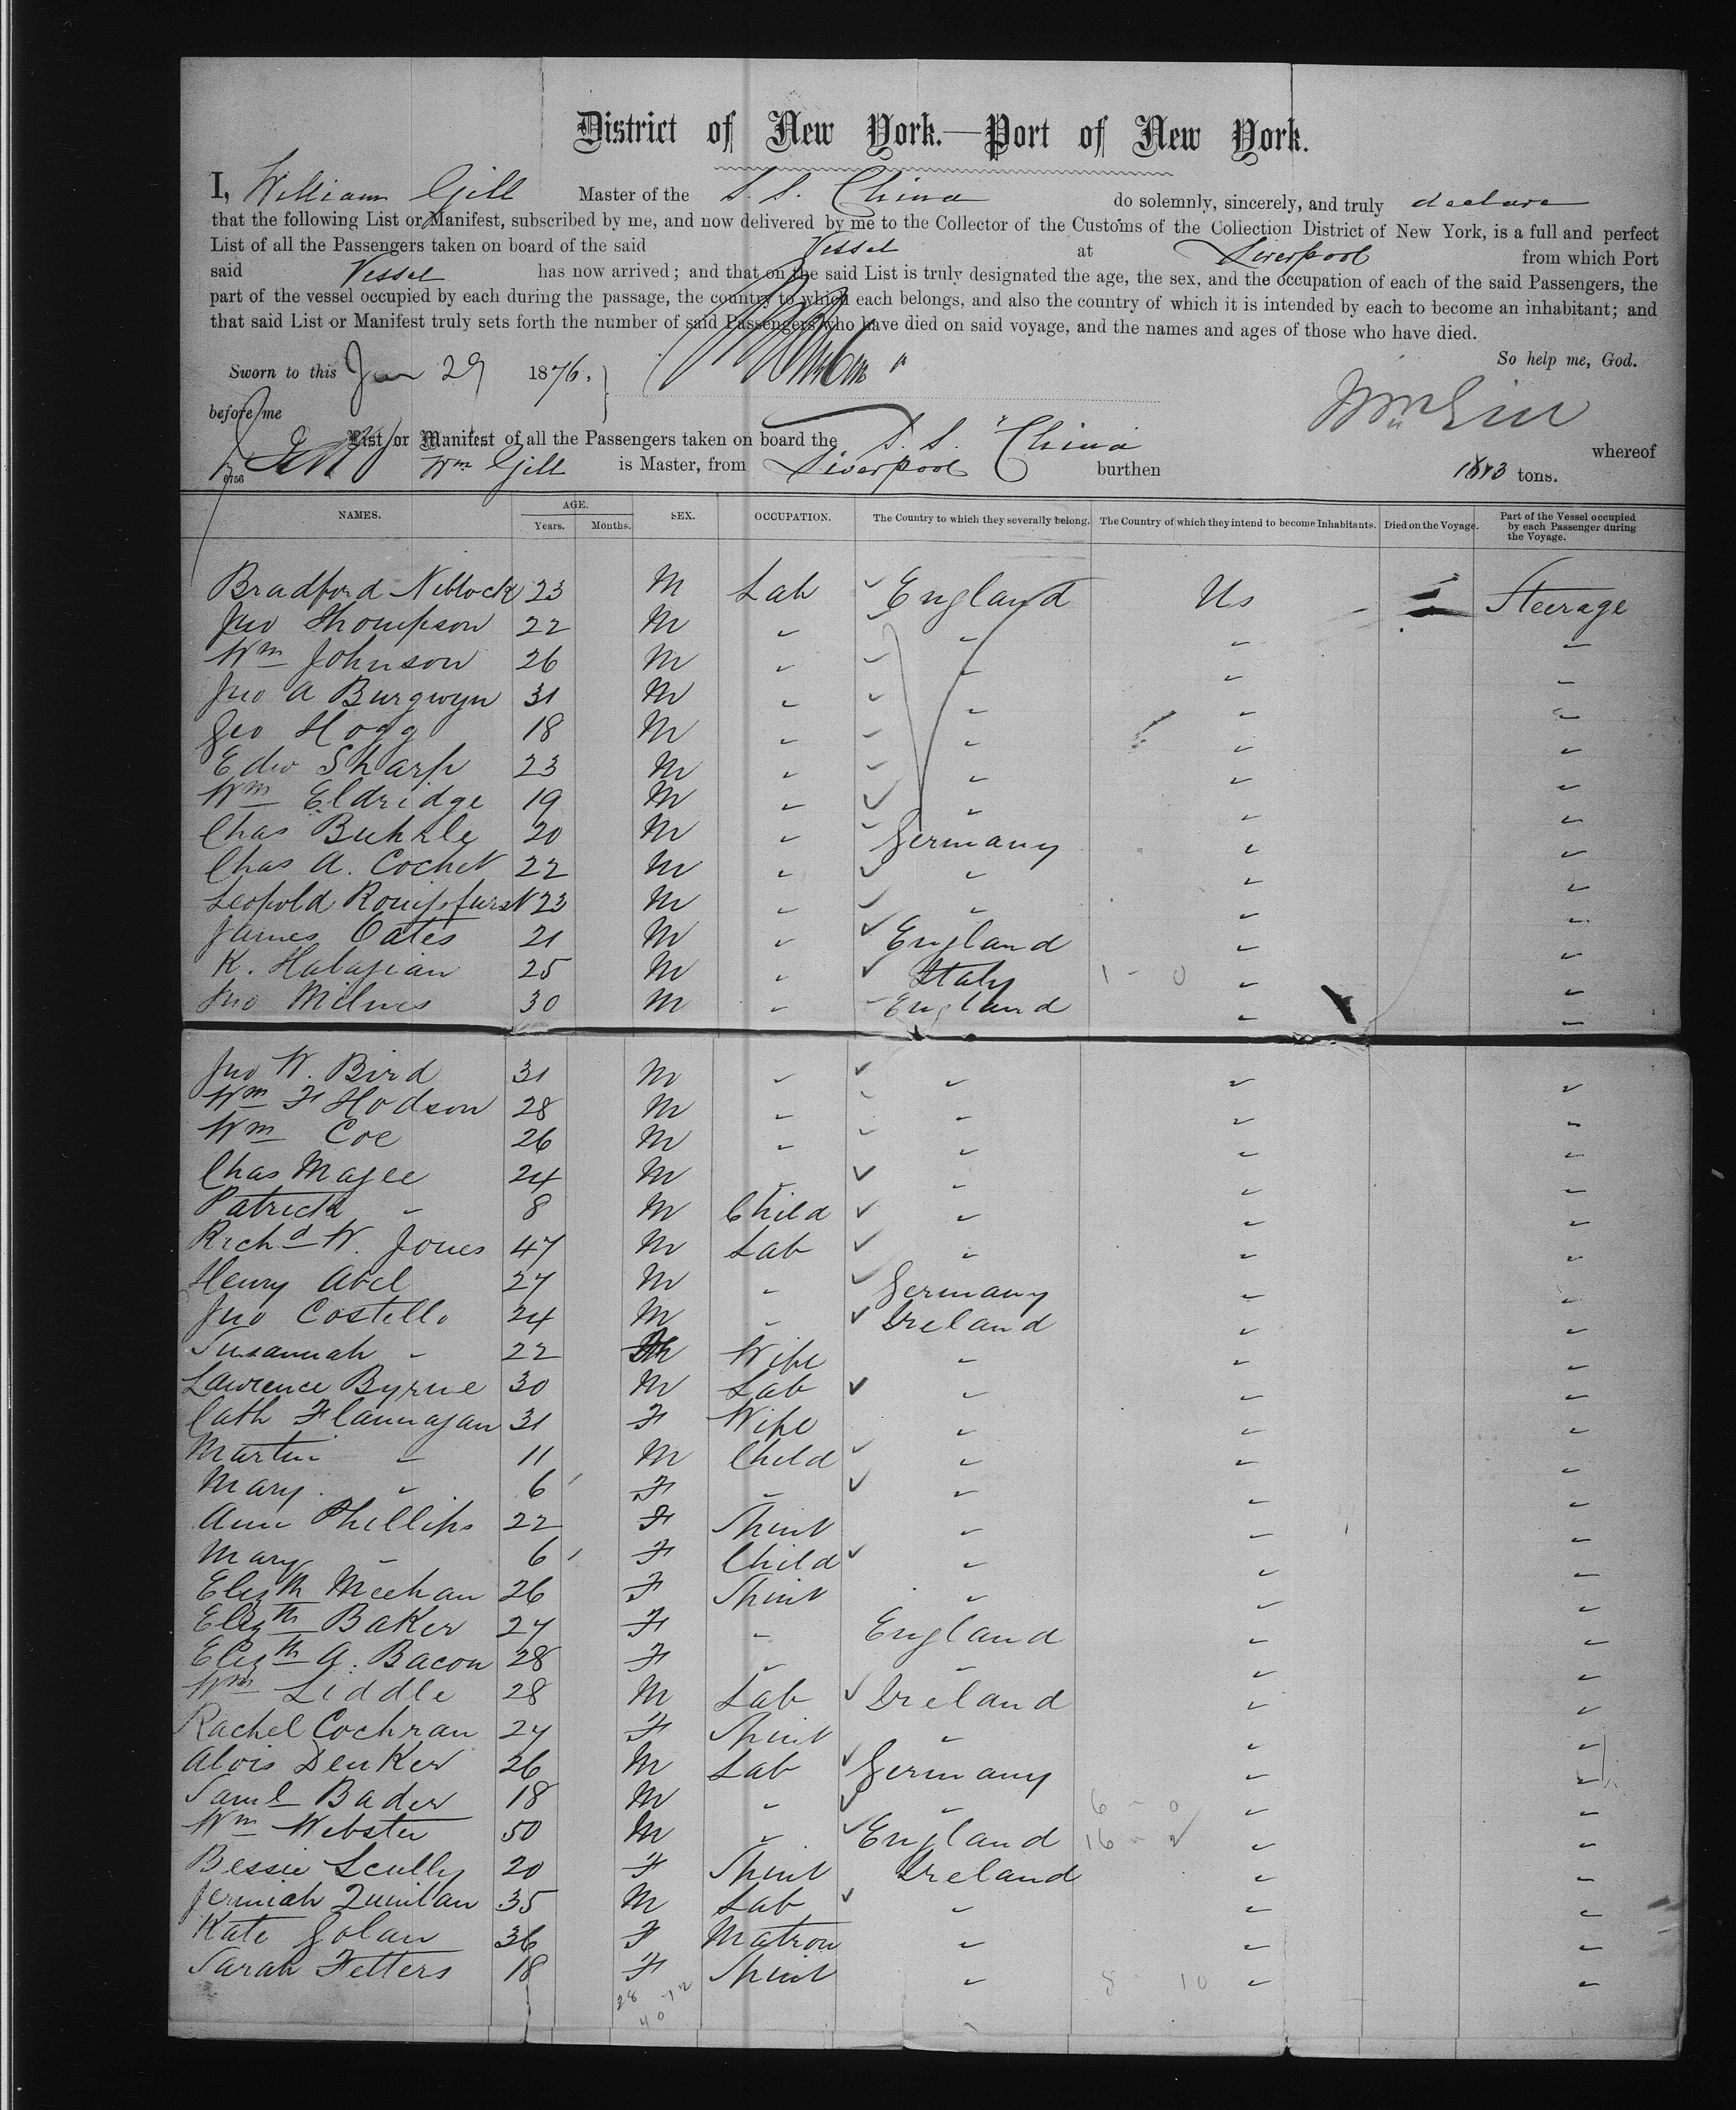 District of New York.—Port of New York.
I, William Gill Master of the S. S. China do solemnly, sincerely, and truly declare
that the following List or Manifest, subscribed by me, and now delivered by me to the Collector of the Customs of the Collection District of New York, is a full and perfect
List of all the Passengers taken on board of the said Vessel at Liverpool from which Port
said Vessel has now arrived; and that on the said List is truly designated the age, the sex, and the occupation of each of the said Passengers, the
part of the vessel occupied by each during the passage, the country to which each belongs, and also the country of which it is intended by each to become an inhabitant; and
that said List or Manifest truly sets forth the number of said Passengers who have died on said voyage, and the names and ages of those who have died.
So help me, God.
Sworn to this Jan 29 1876.
before me
Wm Gill
List or Manifest of all the Passengers taken on board the S. S. "China whereof
Wm Gill is Master, from Liverpool burthen tons.
6756
NAMES. AGE. Years. Months. SEX. OCCUPATION. The Country to which they severally belong. The Country of which they intend to become Inhabitants. Died on the Voyage. Part of the Vessel occupied by each Passenger during the Voyage.
Bradford Niblock 23 M Lab England Us Steerage
Jno Thompson 22 M " " " "
Wm Johnson 26 M " " " "
Jno A Burgwyn 31 M " " " "
Geo Hogg 18 M " " " "
Edw Sharp 23 M " " " "
Wm Eldridge 19 M " " " "
Chas Buhrle 20 M " Germany " "
Chas A. Cochet 22 M " " " "
Leopold 23 M " " " "
James Oates 21 M " England " "
K. Halajian 25 M " Italy 1 - 0 " "
Jno Milnes 30 M " England " "
Jno W. Bird 31 M " " " "
Wm F Hodson 28 M " " " "
Wm Coe 26 M " " " "
Chas Magee 24 M " " " "
Patrick " 8 M Child " " "
Richd W. Jones 47 M Lab " " "
Henry Abel 27 M " Germany " "
Jno Costello 24 M " Ireland " "
Susannah " 22 Wife " " "
Lawrence Byrne 30 M Lab " " "
Cath Flannagan 31 F Wife " " "
Martin " 11 M Child " " "
Mary " 6 F " " " "
Ann Phillips 22 F Spint " " "
Mary " 6 F Child " " "
Elizth Meehan 26 F Spint " " "
Elizth Baker 27 F " England " "
Elizth A. Bacon 28 F " " " "
Wm Liddle 28 M Lab Ireland " "
Rachel Cochran 27 F Spint " " "
Alois Denker 26 M Lab Germany " "
Saml Bader 18 M " " 6 - 0 " "
Wm Webster 50 M " England 16 " "
Bessie Scully 20 F Spint Ireland " "
Jermiah Quinlan 35 M Lab " " "
Kate Golan 36 F Matron " " "
Sarah Fetters 18 F Spint " 5 10 " "
28 12
40